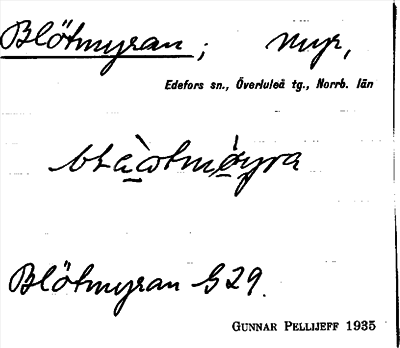 Blötmyran; myr,
Edefors sn., Överluleå tg., Norrb. län
Blötmyran G 29.
GUNNAR PELLIJEFF 1935